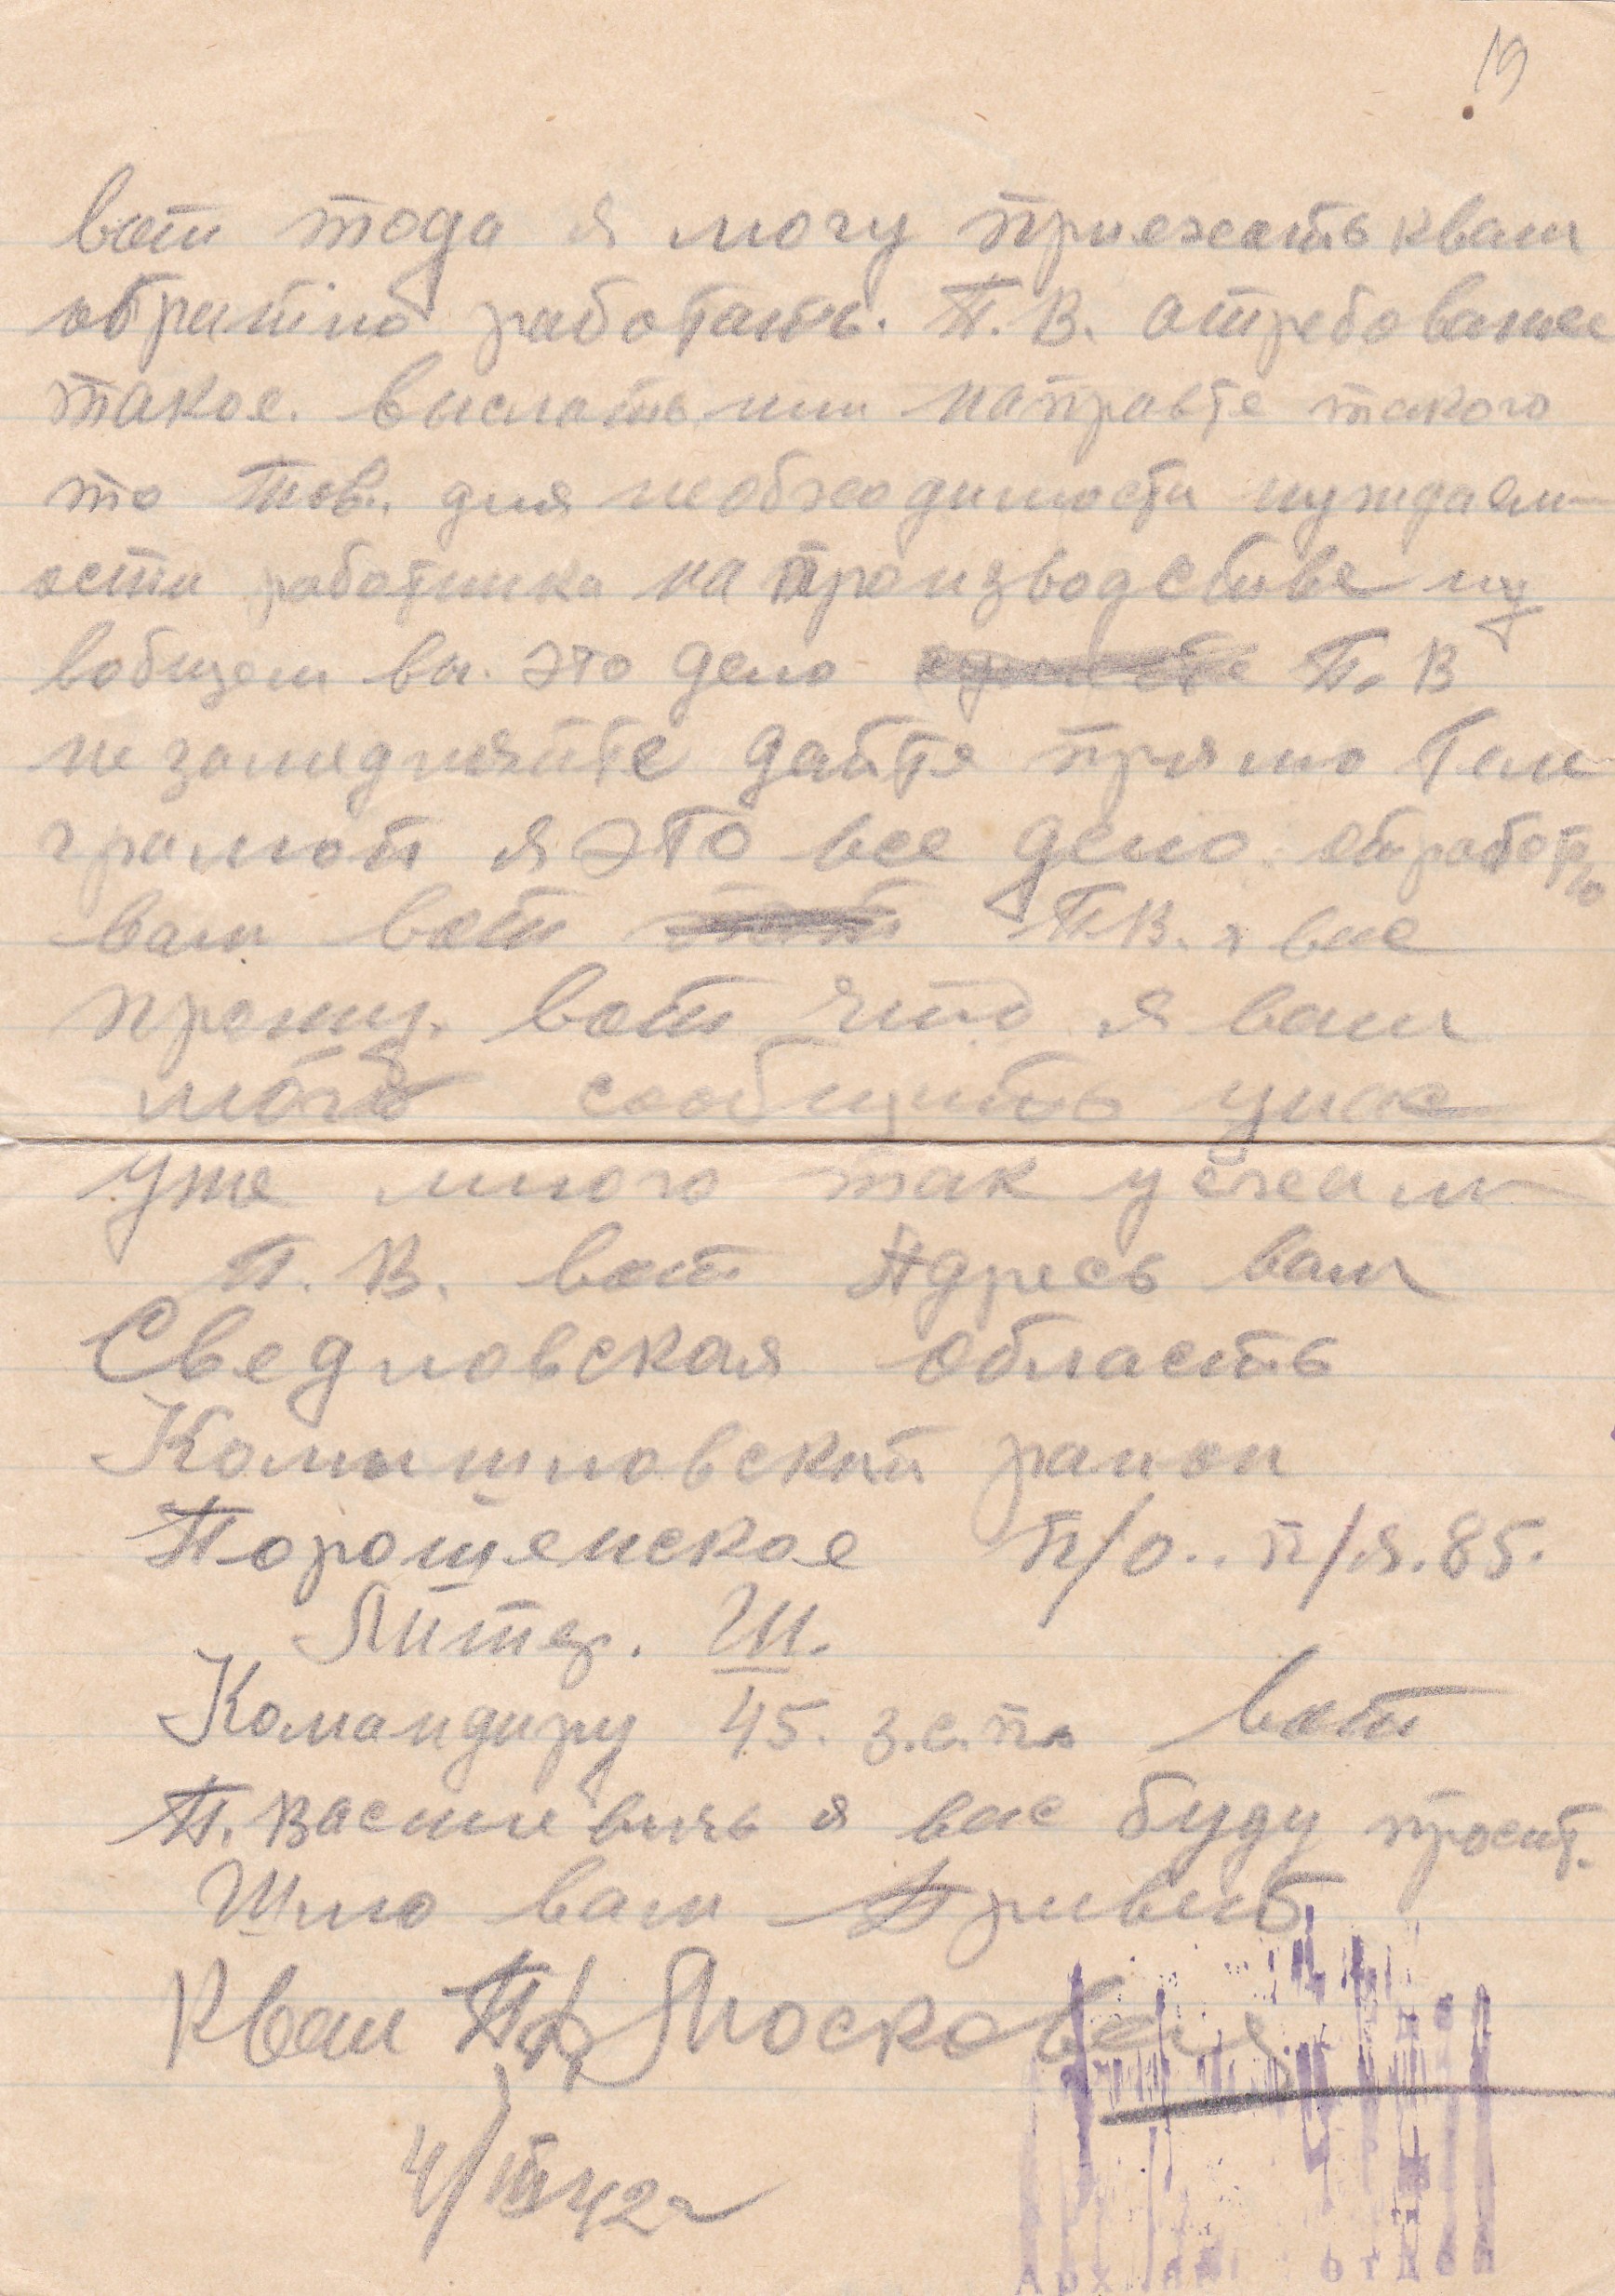 19
вот тода я могу приежать квам
обратно работать. Т. В. отребование
такое. выслать или направте такого
то Тов. для необходимости нуждаем-
ости работника на производстве ну
вобщем вы это дело Т. В
не замедляйте дайте прямо Теле
грамой я это все дело обработаю
вам вот Т.В. я вас
прошу. вот что я вам
могу сообщить унас
уже много так уехали
Т. В. вот Адресь вам
Сведловская область
Комышловский раион
Порошенское п/о.. п/я.85.
Литер. Ш.
Командиру 45. з.с.п. вот
Т. Василевичь я вас буду просит.
Шлю вам Привет
Квам
4/III 42 г
Арх отдел